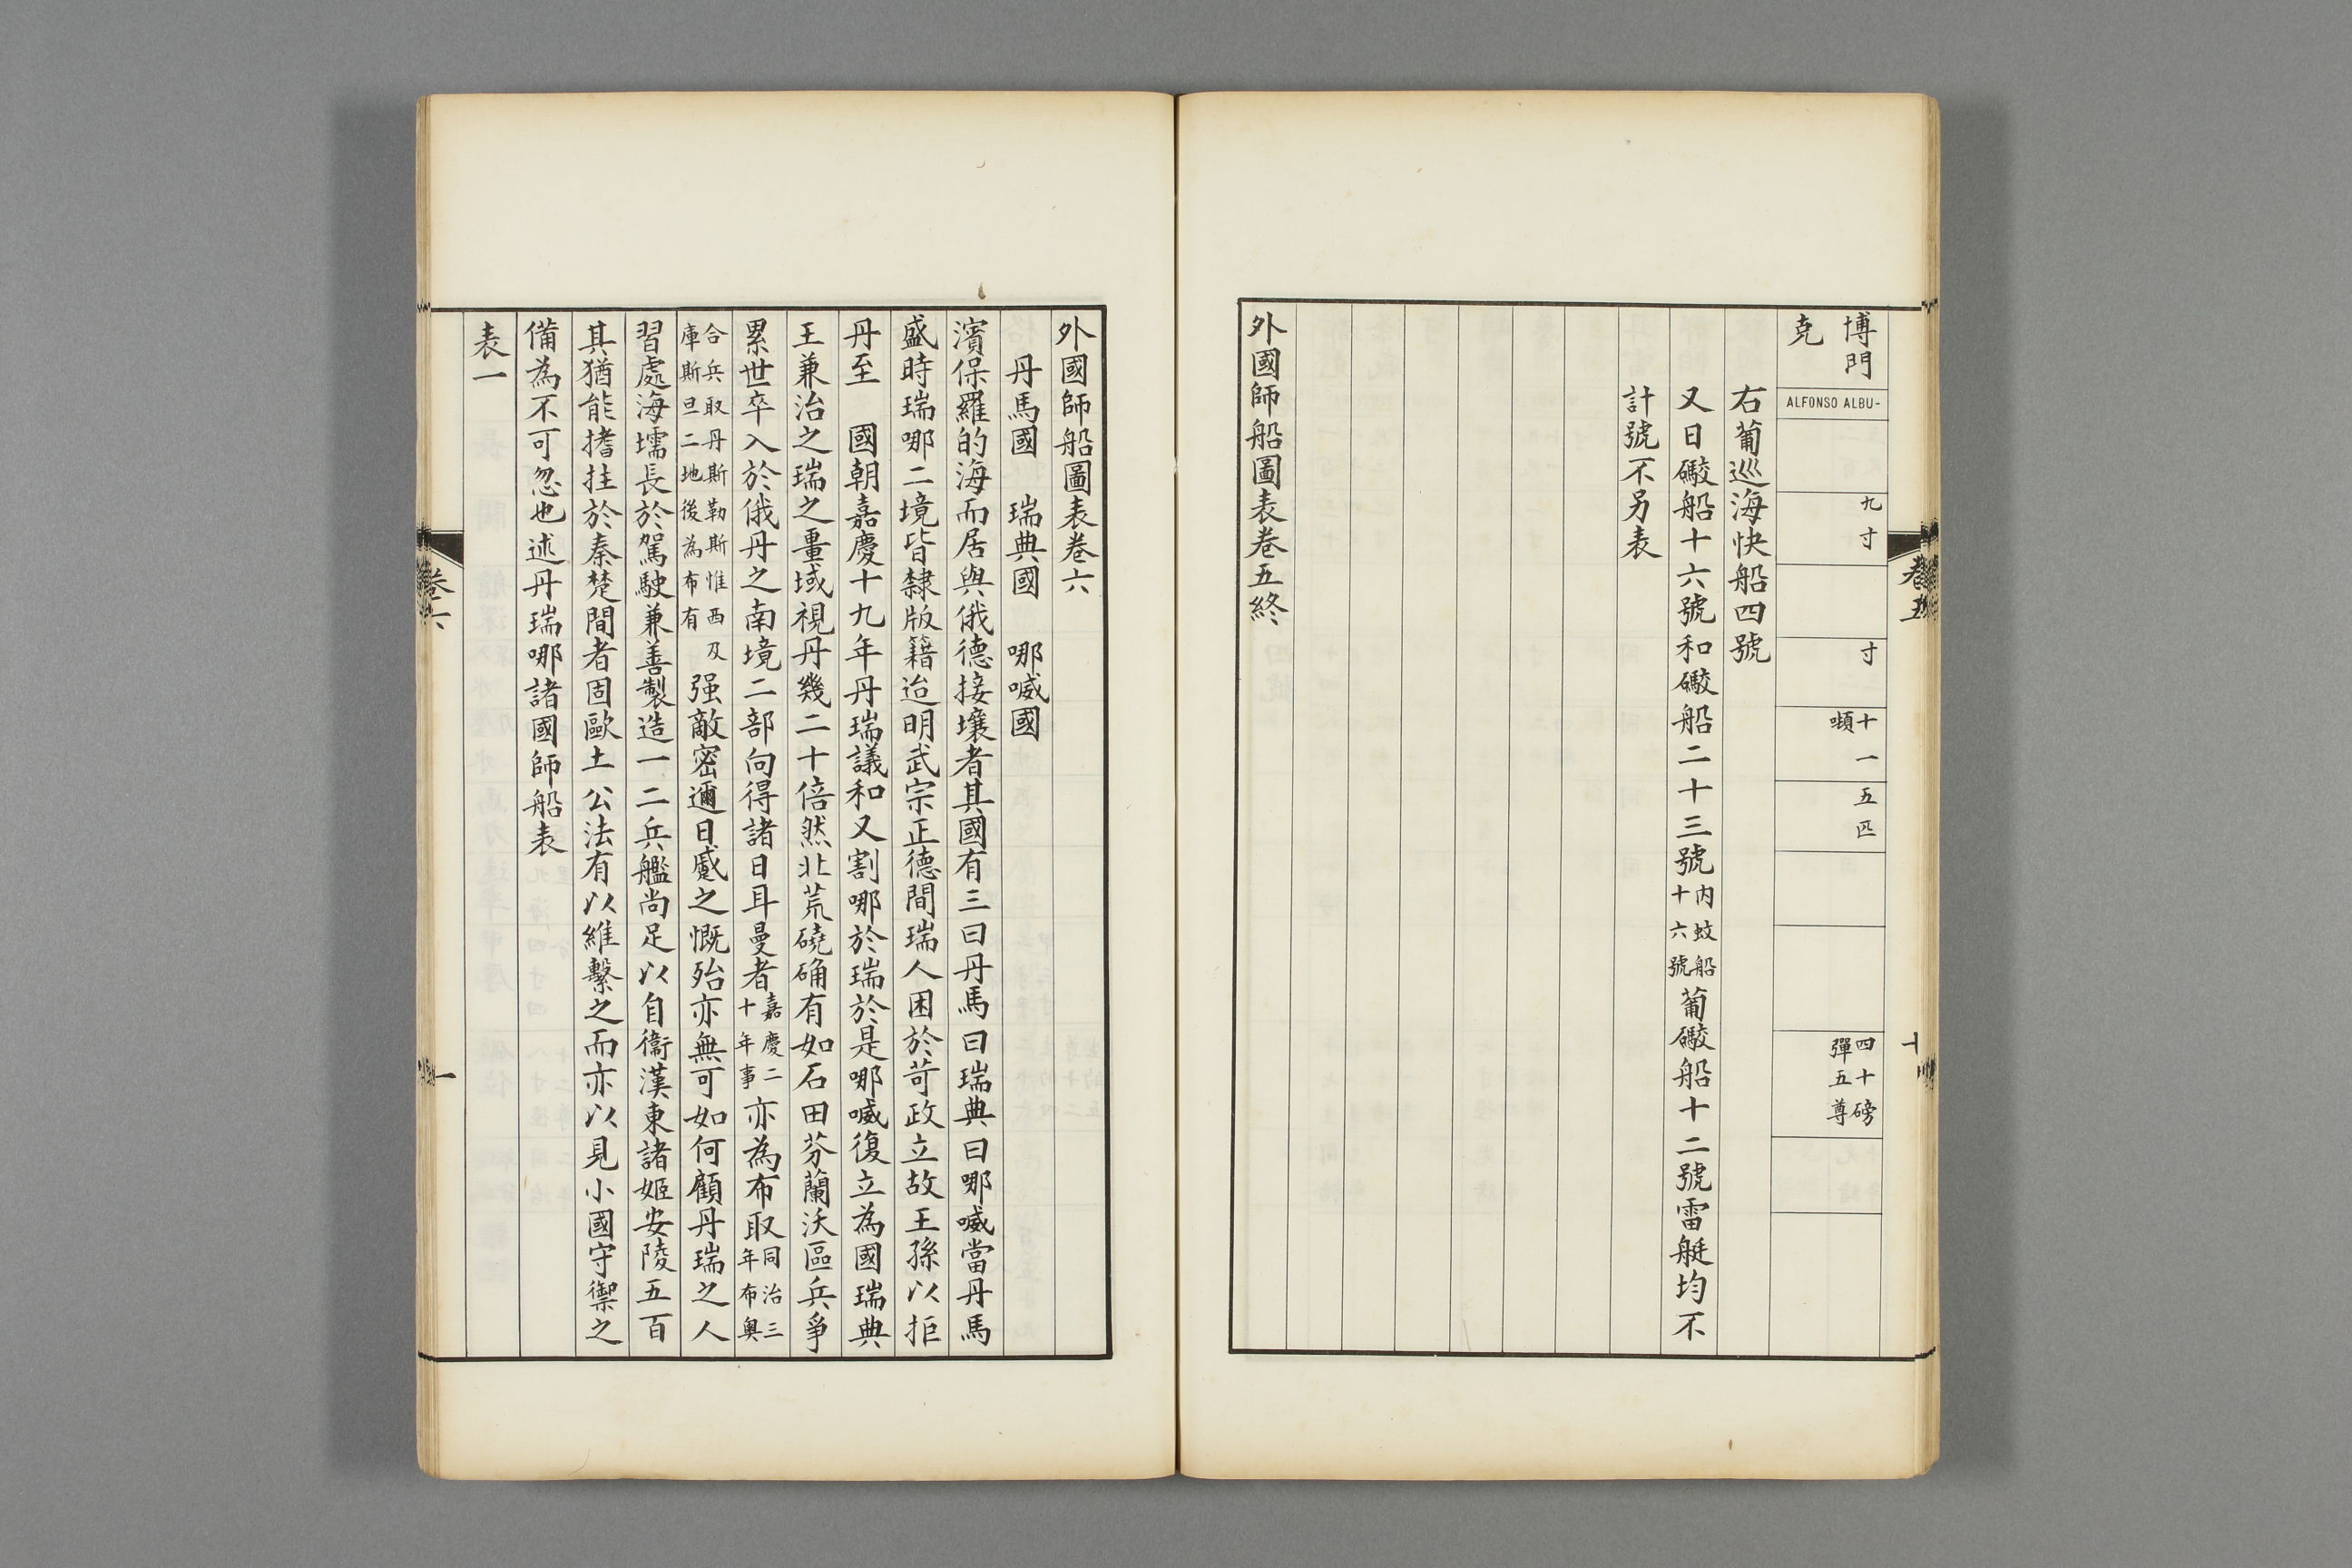 博門
克
ALFONSO ALBU-
九寸
寸
十一
噸
五匹
四十磅
彈五尊
右葡巡海快船四號
又日礮船十六號和礮船二十三號內蚊船十六號葡礮船十二號雷艇均不
計號不另表
外國師船圖表卷五終
卷五
外國師船圖表卷六
丹馬國　瑞典國　哪喊國
濱保羅的海而居與俄德接壤者其國有三曰丹馬曰瑞典曰哪喊當丹馬
盛時瑞哪二境皆隸版籍迨明武宗正德間瑞人困於苛政立故王孫以拒
丹至　國朝嘉慶十九年丹瑞議和又割哪於瑞於是哪喊復立為國瑞典
王兼治之瑞之畺域視丹幾二十倍然北荒磽确有如石田芬蘭沃區兵爭
累世卒入於俄丹之南境二部向得諸日耳曼者嘉慶二十年事亦為布取同治三年布奧
合兵取丹斯勒斯惟西及庫斯旦二地後為布有强敵密邇日蹙之慨殆亦無可如何顧丹瑞之人
習處海壖長於駕駛兼善製造一二兵艦尚足以自衞漢東諸姬安陵五百
其猶能搘拄於秦楚間者固歐土公法有以維繫之而亦以見小國守禦之
備為不可忽也述丹瑞哪諸國師船表
表一
卷六
一